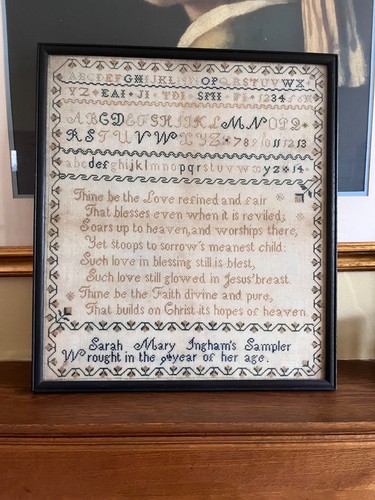 ABCDEFGHIJKLMNOPQRSTUVWX
YZ EAI JI TDI SMI FI 1234
ABCDEFGHIJKLMNOPQ
RSTUVWXYZ 7 8 9 10 11 12 13
abcdefghijklmnopqrstuvwxyz 14
Thine be the Love refined and fair
That blesses even when it is reviled;
Soars up to heaven, and worships there,
Yet stoops to sorrow's meanest child:
Such love in blessing still is blest,
Such love still glowed in Jesus' breast
Thine be the Faith divine and pure,
That builds on Christ its hopes of heaven
Sarah Mary Ingham's Sampler
Wrought in the year of her age.